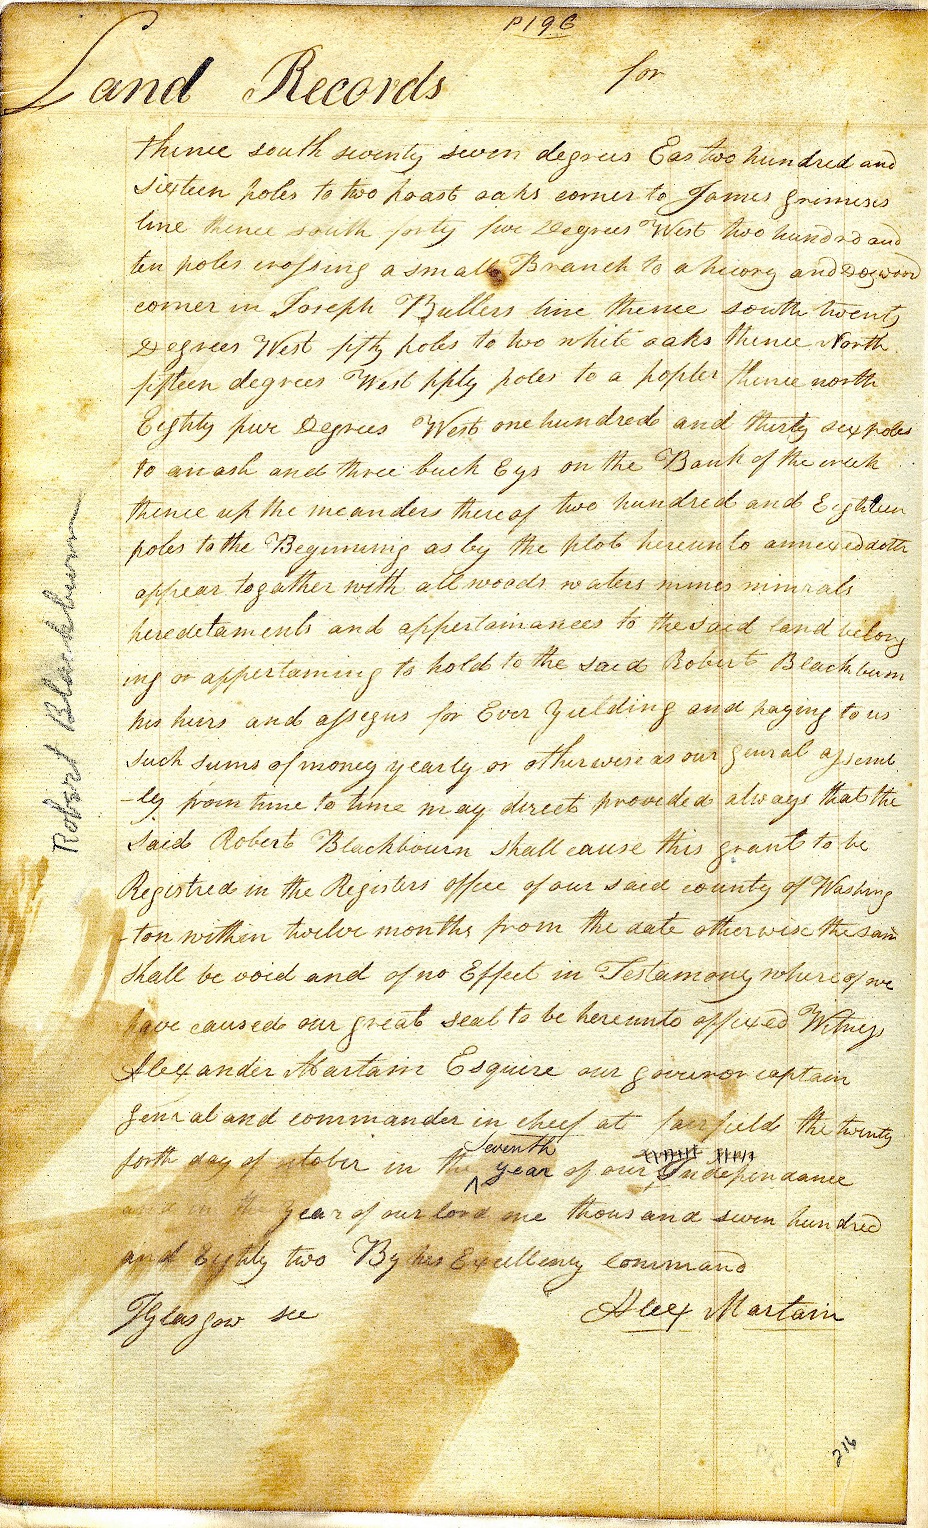 P196
Land Records for
thence south seventy seven degrees Eas two hundred and
sixteen poles to two poast oaks corner to James grimeses
line thence south forty five Degrees West two hundrd and
ten poles crossing a small Branch to a hicory and Dogwood
corner in Joseph Bullers line thence south twenty
Degrees West fifty poles to two white oaks thence North
fifteen degrees West fifty poles to a popler thence north
Eighty five Degrees West one hundred and thirty six poles
to an ash and three buck Eys on the Bank of the creek
thence up the meanders there of two hundred and Eighteen
poles to the Beginning as by the plot hereunto annexed doth
appear together with all woods waters mines minrals
heredetaments and appertainances to the said land belong
ing or appertaining to hold to the said Robert Blackburn
his heirs and assigns for Ever Yielding and paying to us
such sums of money yearly or otherwise as our genral assem
-ly from time to time may direct provided always that the
said Robert Blackbourn shall cause this grant to be
Registred in the Registers office of our said county of Washing
-ton within twelve months from the date otherwise the sam
shall be void and of no Effect in Testamony where of we
have caused our great seal to be hereunto affixed Witness
Alexander Martain Esquire our governor captain
genral and commander in cheif at fairfield the twenty
forth day of october in the seventh year of our Independance
and in the year of our lord one thousand seven hundred
and Eighty two By his Excellency command
J Glasgow sec Alex Martain
Robert Blackburn
216